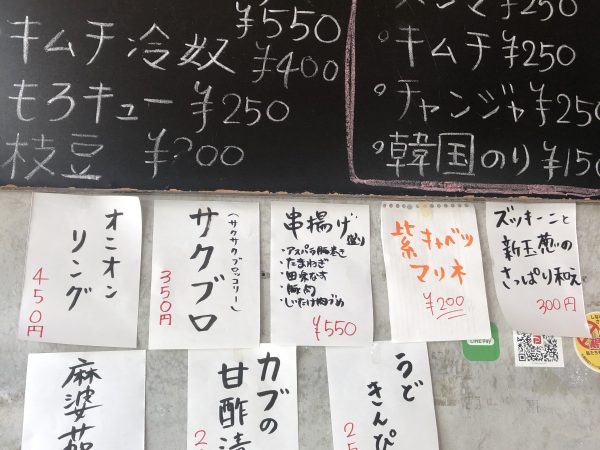 ¥550
キムチ冷奴 ¥400
もろキュー ¥250
枝豆
¥250
キムチ ¥250
チャンジャ ¥250
韓国のり ¥150
オニオン
リング
450円
(サクサクブロッコリー)
サクブロ
350円
串揚げ
盛り
・アスパラ豚巻き
・たまねぎ
・田楽なす
・豚肉
・しいたけ肉づめ
¥550
紫キャベツ
マリネ
¥200
ズッキーニと
新玉葱の
さっぱり和え
300円
麻婆茄
カブの
甘酢漬
うど
きんぴ
LINE Pay